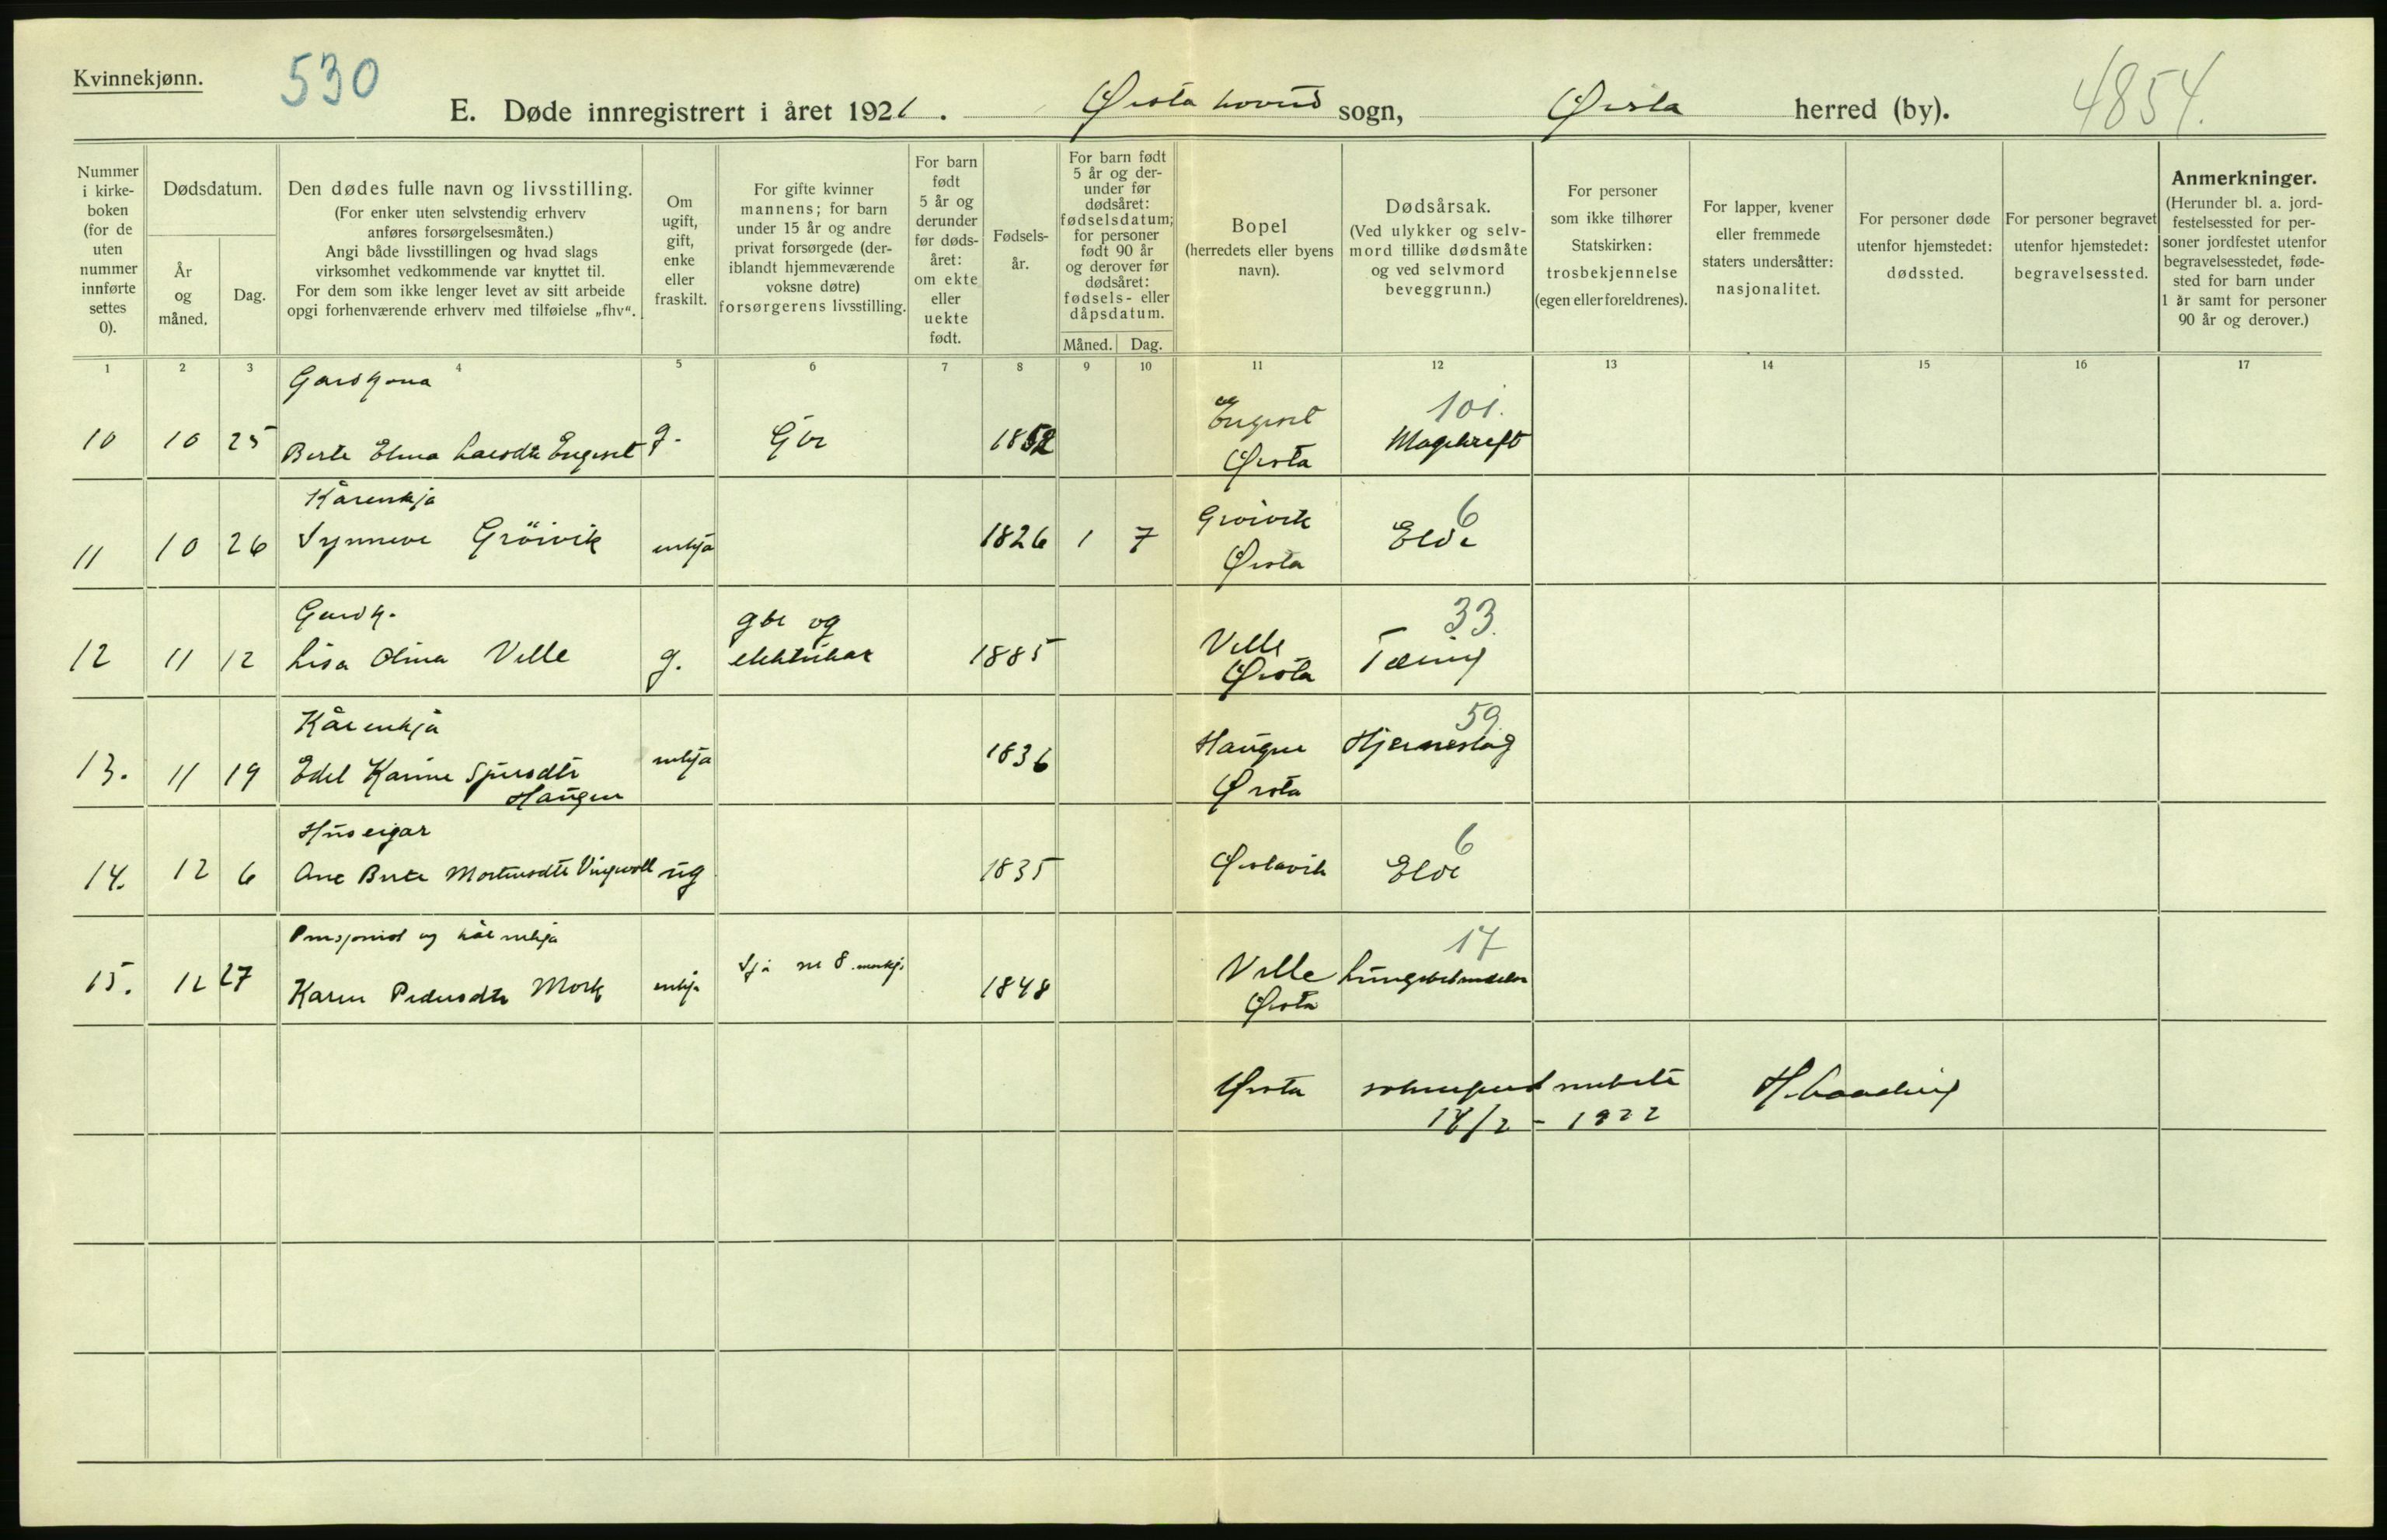 Kvinnekjønn.
530
E. Døde innregistrert i året 1921. Ørsta hovud sogn, Ørsta herred (by).
4854.
Nummer i kirkeboken (for de uten nummer innførte settes 0).
Dødsdatum.
År og måned.
Dag.
Den dødes fulle navn og livsstilling.
(For enker uten selvstendig erhverv
anføres forsørgelsesmåten.)
Angi både livsstillingen og hvad slags
virksomhet vedkommende var knyttet til.
For dem som ikke lenger levet av sitt arbeide
opgi forhenværende erhverv med tilføielse „fhv“.
Om ugift, gift, enke eller fraskilt.
For gifte kvinner
mannens; for barn
under 15 år og andre
privat forsørgede (der-
iblandt hjemmeværende
voksne døtre)
forsørgerens livsstilling.
For barn
født
5 år og
derunder
før døds-
året:
om ekte
eller
uekte
født.
Fødsels-
år.
For barn født
5 år og der-
under før
dødsåret:
fødselsdatum;
for personer
født 90 år
og derover før
dødsåret:
fødsels- eller
dåpsdatum.
Måned. Dag.
Bopel
(herredets eller byens
navn).
Dødsårsak.
(Ved ulykker og selv-
mord tillike dødsmåte
og ved selvmord
beveggrunn.)
For personer
som ikke tilhører
Statskirken:
trosbekjennelse
(egen eller foreldrenes).
For lapper, kvener
eller fremmede
staters undersåtter:
nasjonalitet.
For personer døde
utenfor hjemstedet:
dødssted.
For personer begravet
utenfor hjemstedet:
begravelsessted.
Anmerkninger.
(Herunder bl. a. jord-
festelsessted for per-
soner jordfestet utenfor
begravelsesstedet, føde-
sted for barn under
1 år samt for personer
90 år og derover.)
1 2 3 4 5 6 7 8 9 10 11 12 13 14 15 16 17
Gardkona
10 10 25 Berte Elina Larsdtr Engeset g. Gbr 1852 Engeset Ørsta 101. Magekreft
Kårenkja
11 10 26 Synneve Gröivik enkja 1826 1 7 Gröivik Ørsta 6 Elde
Gardk.
12 11 12 Lisa Olina Velle g. gbr og elektrikar 1885 Velle Ørsta 33. Tæring
Kårenkja
13. 11 19 Edel Karine Sjursdtr Haugen enkja 1836 Haugen Ørsta 59. Hjerneslag
Huseigar
14. 12 6 Ane Berte Mortensdtr ug 1835 Ørstavik 6 Elde
Pensjonist og kårenkja
15. 12 27 Karen Pedersdtr Mork enkja Sjå nr 8 1848 Velle Ørsta 17
Ørsta sokneprestembete
14/2 - 1922